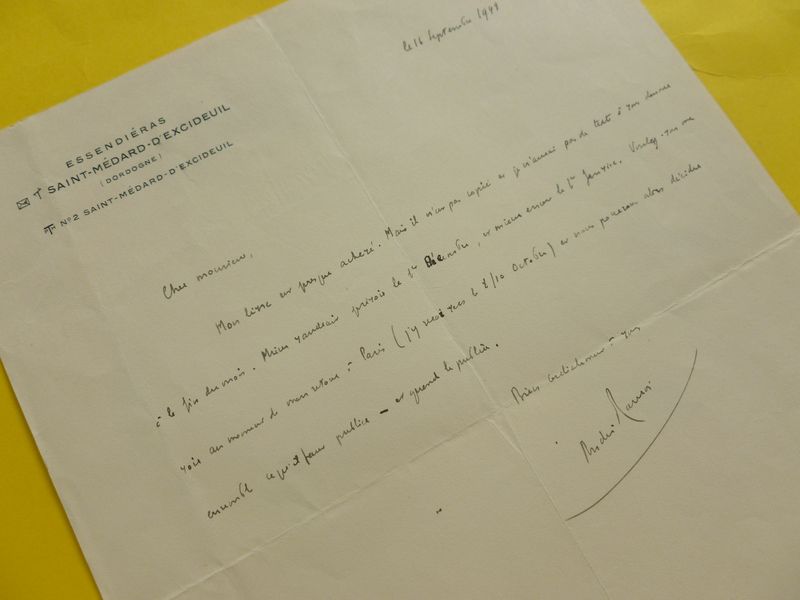 le 16 Septembre
ESSENDIÉRAS
SAINT-MÉDARD-D'EXCIDEUIL
(DORDOGNE)
Nº 2 SAINT-MÉDARD-D'EXCIDEUIL
Cher monsieur,
Mon livre est presque achevé. Mais il n'est pas copié et je n'aurai pas de texte à vous donner
à la fin du mois. Mieux vaudrait prévoir le 1er Décembre, et mieux encore le 1er Janvier. Voulez-vous me
voir au moment de mon retour à Paris (j'y serai vers le 8/10 Octobre) et nous pourrons alors décider
ensemble ce qu'il faut publier – et quand le publier.
Bien cordialement à vous
André Maurois